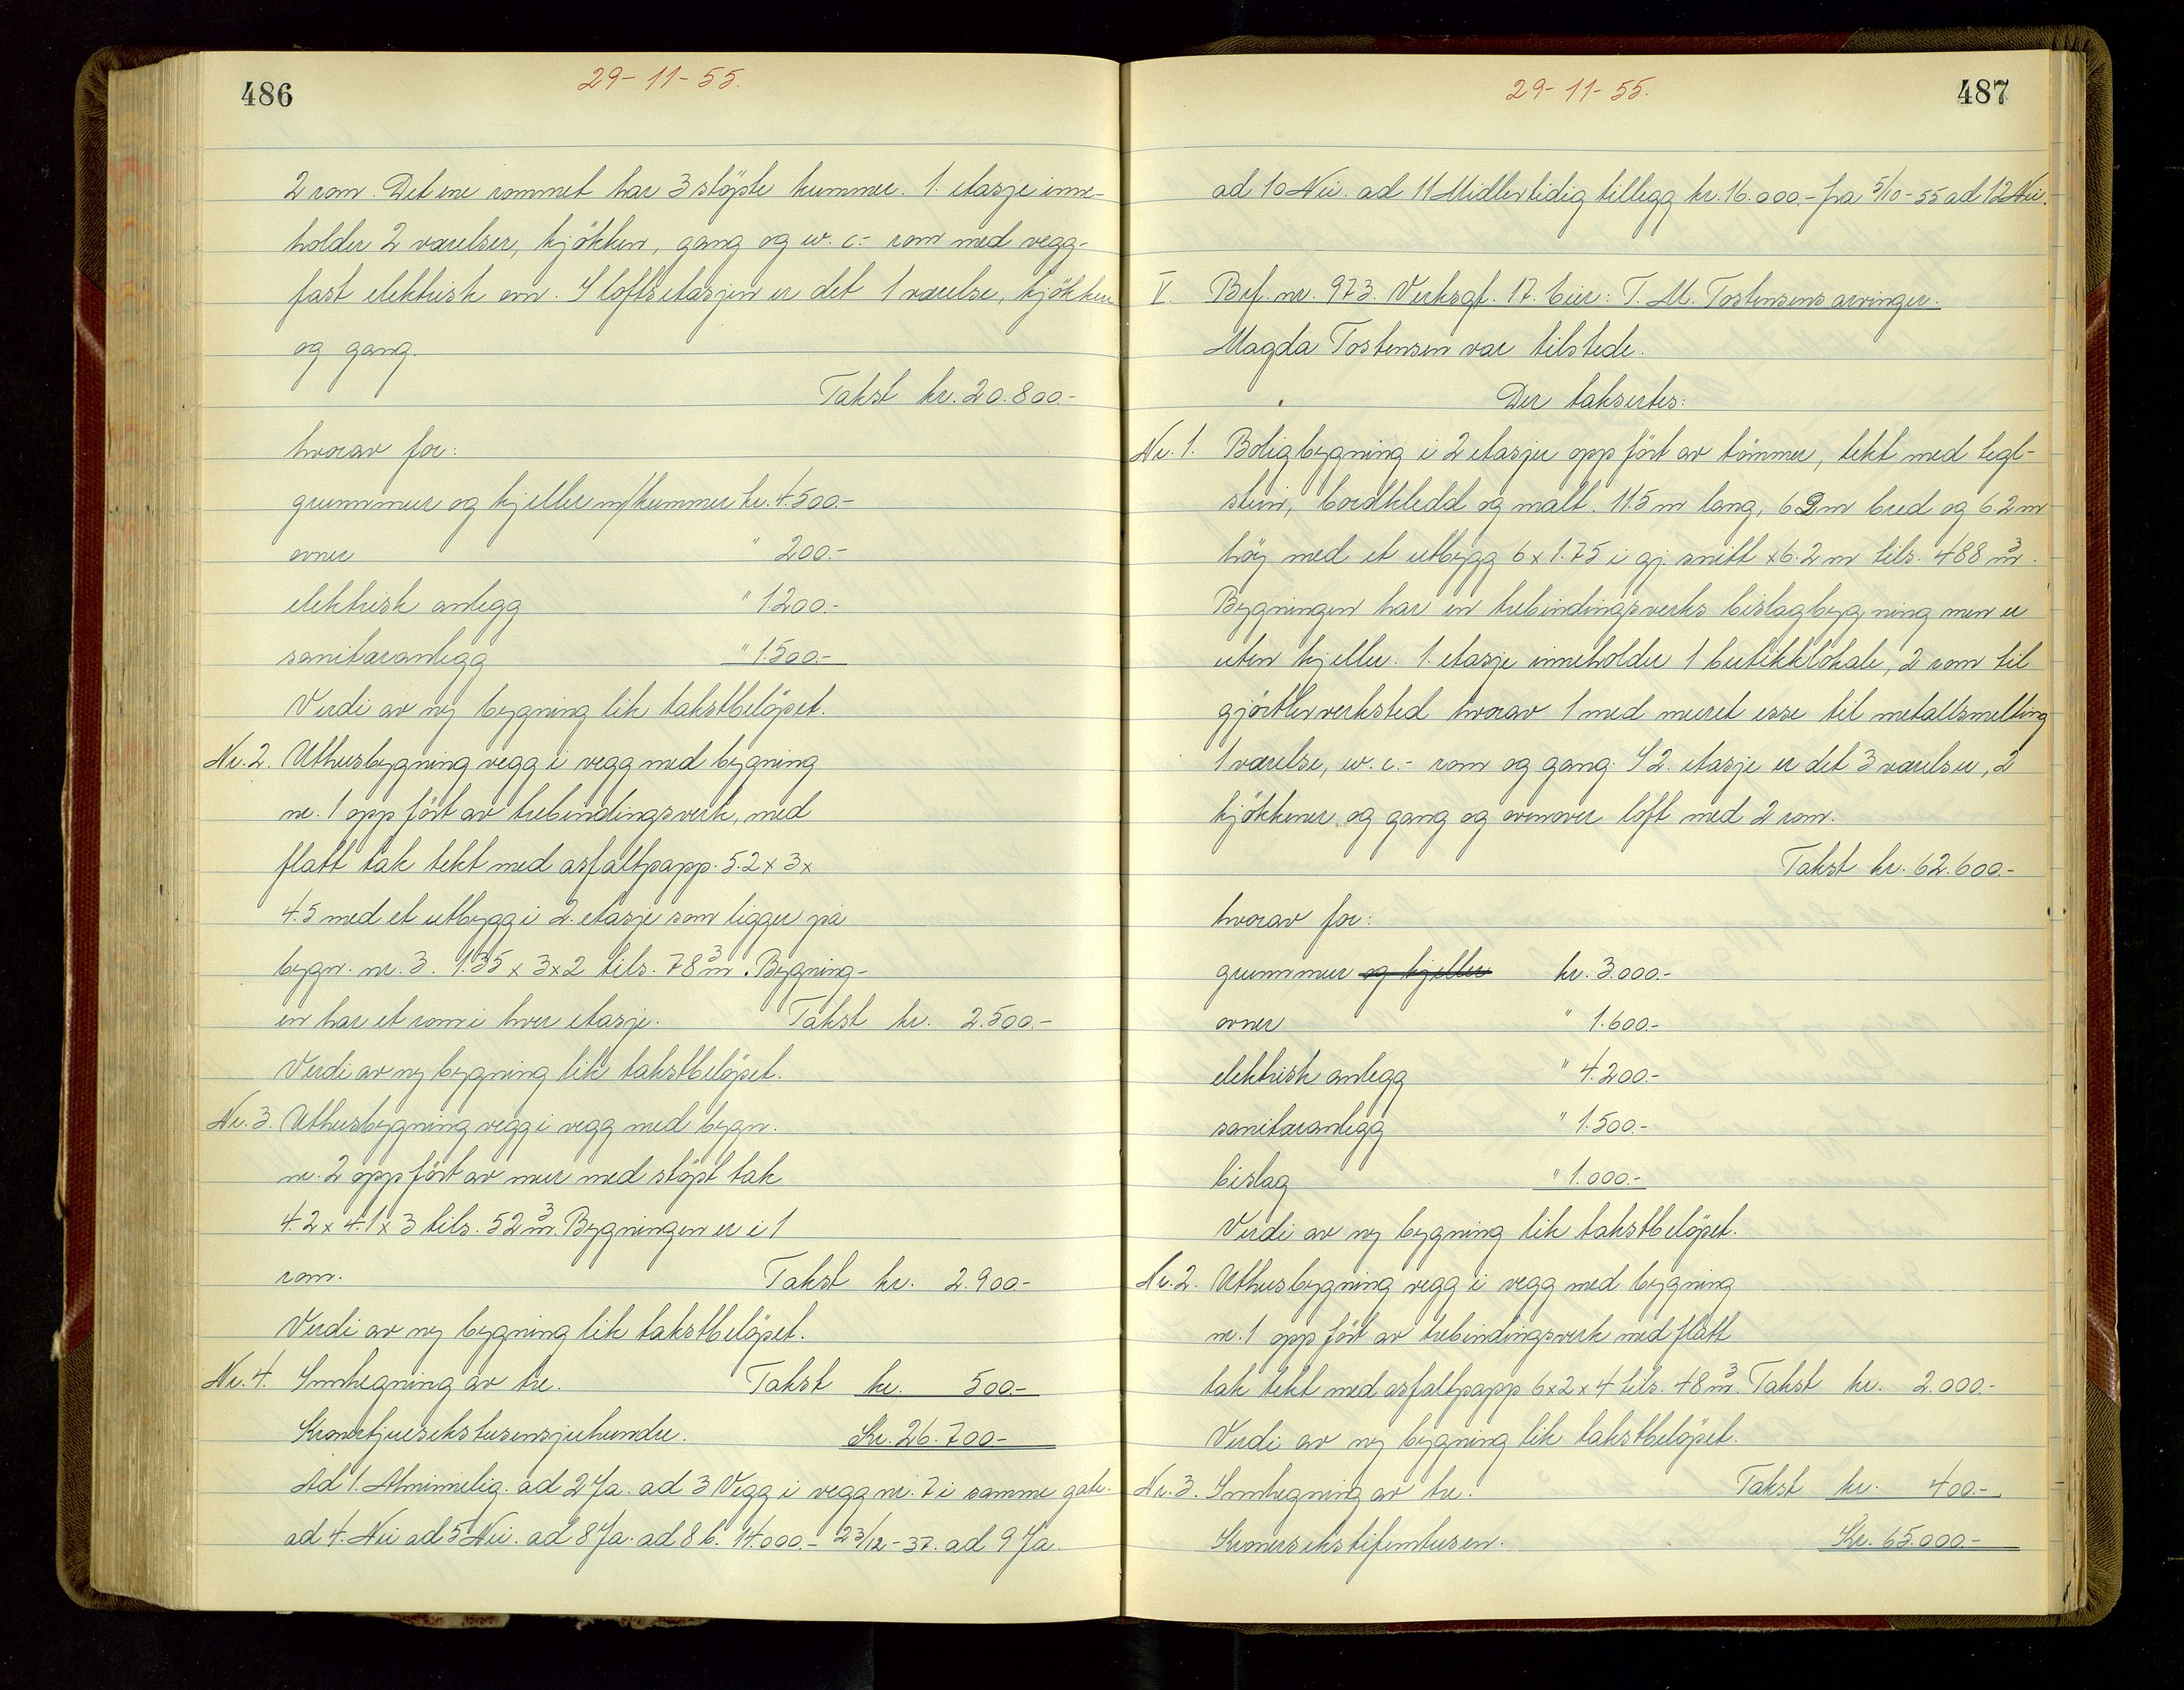 486
29-11-55.
2 rom. Det ene rommet har 3 støpte kummer. 1. etasje inne-
holder 2 værelser, kjökken, gang og w.c.- rom med vegg-
fast elektrisk ovn. I loftsetasjen er det 1 værelse, kjökken
og gang.
Takst kr. 20.800.-
hvorav for:
grunnmur og kjeller m/kummer kr. 4.500.-
ovner " 200.-
elektrisk anlegg " 1.200.-
sanitæranlegg " 1.500.-
Verdi av ny bygning lik takstbelöpet.
Nr. 2. Uthusbygning vegg i vegg med bygning
nr. 1 oppfört av trebindingsverk, med
flatt tak tekt med asfaltpapp. 5.2 x 3 x
4.5 med et utbygg i 2. etasje som ligger på
bygn. nr. 3. 1.35 x 3 x 2 tils. 78 m³. Bygning-
en har et rom i hver etasje. Takst kr. 2.500.-
Verdi av ny bygning lik takstbelöpet.
Nr. 3. Uthusbygning vegg i vegg med bygn.
nr. 2 oppfört av mur med stöpt tak
4.2 x 4.1 x 3 tils. 52 m³. Bygningen er i 1
rom. Takst kr. 2.900.-
Verdi av ny bygning lik takstbelöpet.
Nr. 4. Innhegning av tre. Takst kr. 500.-
Kronertjuesekstusensjuhundre. Kr. 26.700.-
Ad 1. Alminnelig. ad 2 Ja. ad 3 Vegg i vegg nr. 7 i samme gate.
ad 4. Nei ad 5 Nei. ad 8 Ja. ad 8 b. 14.000.- 23/12-37. ad 9 Ja.
29-11-55.
487
ad 10 Nei. ad 11 Midlertidig tillegg kr. 16.000.- fra 5/10-55 ad 12 Nei.
V. Brf. nr. 973. Verksgt. 17. Eier: T. M. Tostensens arvinger.
Magda Tostensen var tilstede.
Der taksertes:
Nr. 1. Boligbygning i 2 etasjer oppfört av tömmer, tekt med tegl-
stein, bordkledd og malt. 11.5 m lang, 6.2 m bred og 6.2 m
höy med et utbygg 6 x 1.75 i gj. snitt x 6.2 m tils. 488 m³.
Bygningen har en trebindingsverks bislagbygning men er
uten kjeller. 1. etasje inneholder 1 butikklokale, 2 rom til
gjörtlerverksted hvorav 1 med muret esse til metallsmelting
1 værelse, w.c.- rom og gang. I 2. etasje er det 3 værelser, 2
kjökkener og gang og ovenover loft med 2 rom.
Takst kr. 62.600.-
hvorav for:
grunnmur og kjeller kr. 3.000.-
ovner " 1.600.-
elektrisk anlegg " 4.200.-
sanitæranlegg " 1.500.-
bislag " 1.000.-
Verdi av ny bygning lik takstbelöpet.
Nr. 2. Uthusbygning vegg i vegg med bygning
nr. 1 oppfört av trebindingsverk med flatt
tak tekt med asfaltpapp 6 x 2 x 4 tils. 48 m³. Takst kr. 2.000.-
Verdi av ny bygning lik takstbelöpet.
Nr. 3. Innhegning av tre. Takst kr. 400.-
Kronersekstifemtusen. Kr. 65.000.-